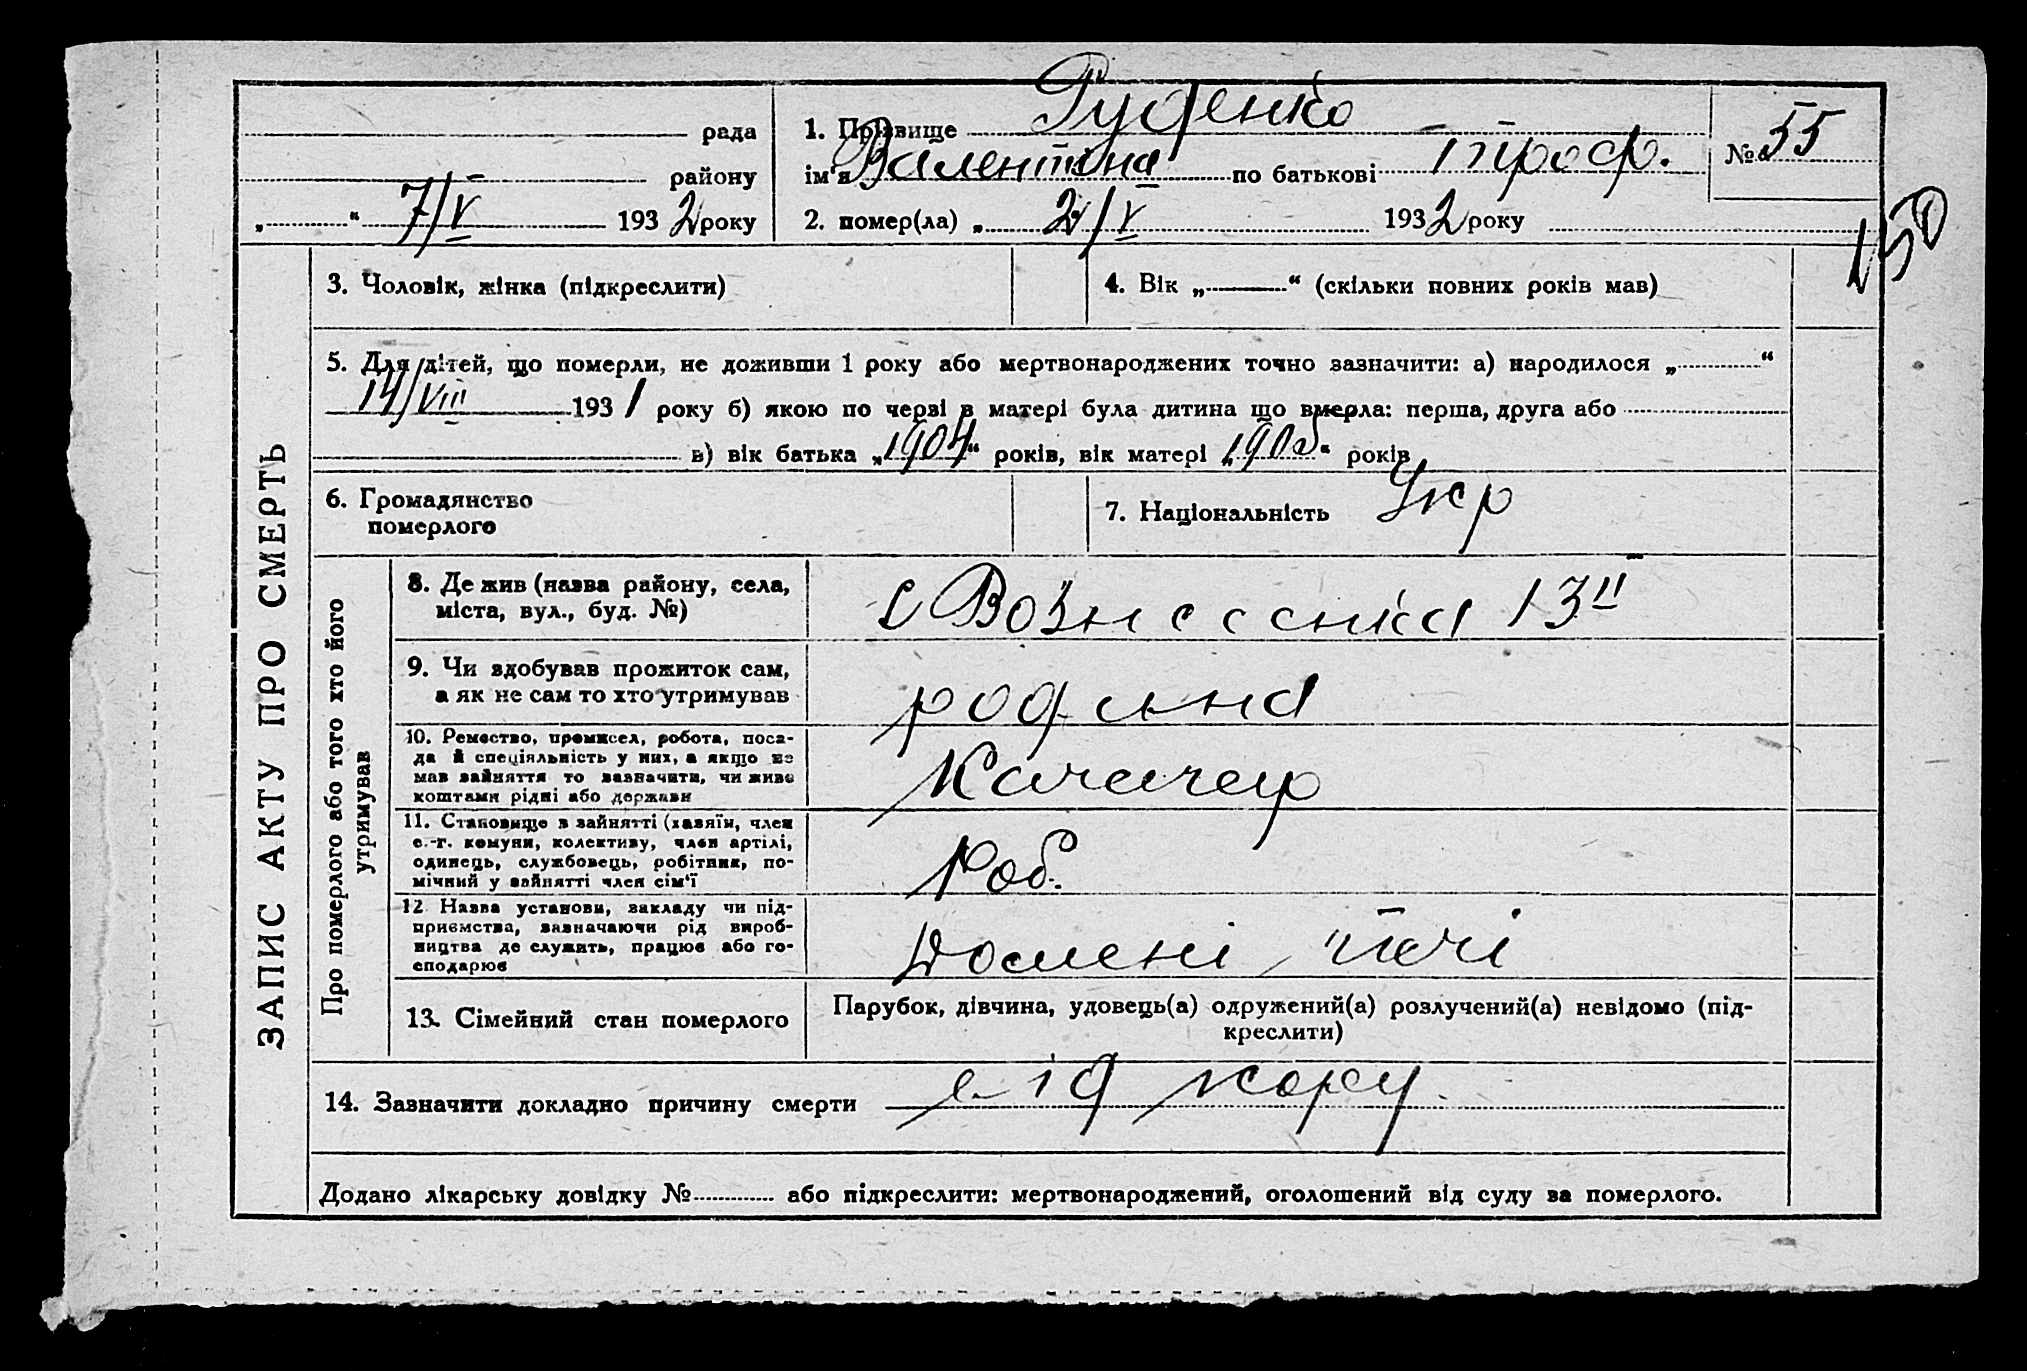 Руденко
рада 1. Прізвище № 55
району ім'я Валентина по батькові Троф.
„ “ 7/V 1932 року 2. помер(ла) „ 2/V 1932 року
150
3. Чоловік, жінка (підкреслити) 4. Вік „ “ (скільки повних років мав)
5. Для дітей, що померли, не доживши 1 року або мертвонароджених точно зазначити: а) народилося „ “
14/VIII 1931 року б) якою по черзі в матері була дитина що вмерла: перша, друга або
в) вік батька „1904“ років, вік матері „ “ років
6. Громадянство
померлого
7. Національність Укр
ЗАПИС АКТУ ПРО СМЕРТЬ
Про померлого або того хто його
утримував
8. Де жив (назва району, села,
міста, вул., буд. №)
с Вознесенка 13
9. Чи здобував прожиток сам,
а як не сам то хто утримував
родина
10. Ремество, промисел, робота, поса-
да й спеціяльність у них, а якщо не
мав зайняття то зазначити, чи живе
коштами рідні або держави
11. Становище в зайнятті (хазяїн, член
с.-г. комуни, колективу, член артілі,
одинець, службовець, робітник, по-
мічний у зайнятті член сім'ї
Роб.
12 Назва установи, закладу чи під-
приємства, зазначаючи рід вироб-
ництва де служить, працює або го-
сподарює
Домені печі
13. Сімейний стан померлого
Парубок, дівчина, удовець(а) одружений(а) розлучений(а) невідомо (під-
креслити)
14. Зазначити докладно причину смерти від кору
Додано лікарську довідку № або підкреслити: мертвонароджений, оголошений від суду за померлого.